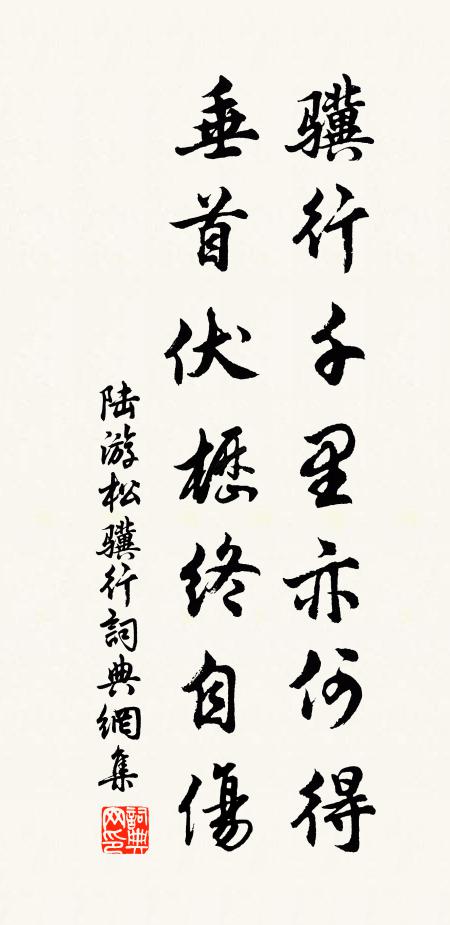 骥行千里亦何得
垂首伏櫪終自傷
陆游松骥行詞典網集
詞典
网印